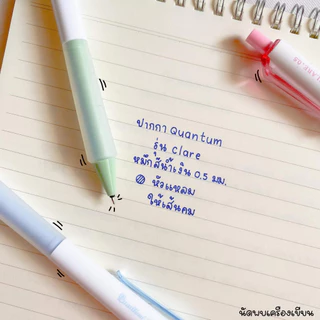 ปากกา Quantum
รุ่น Clare
หมึกสีน้ำเงิน 0.5 มม.
หัวแหลม
ให้เส้นคม
นัดพบเครื่องเขียน